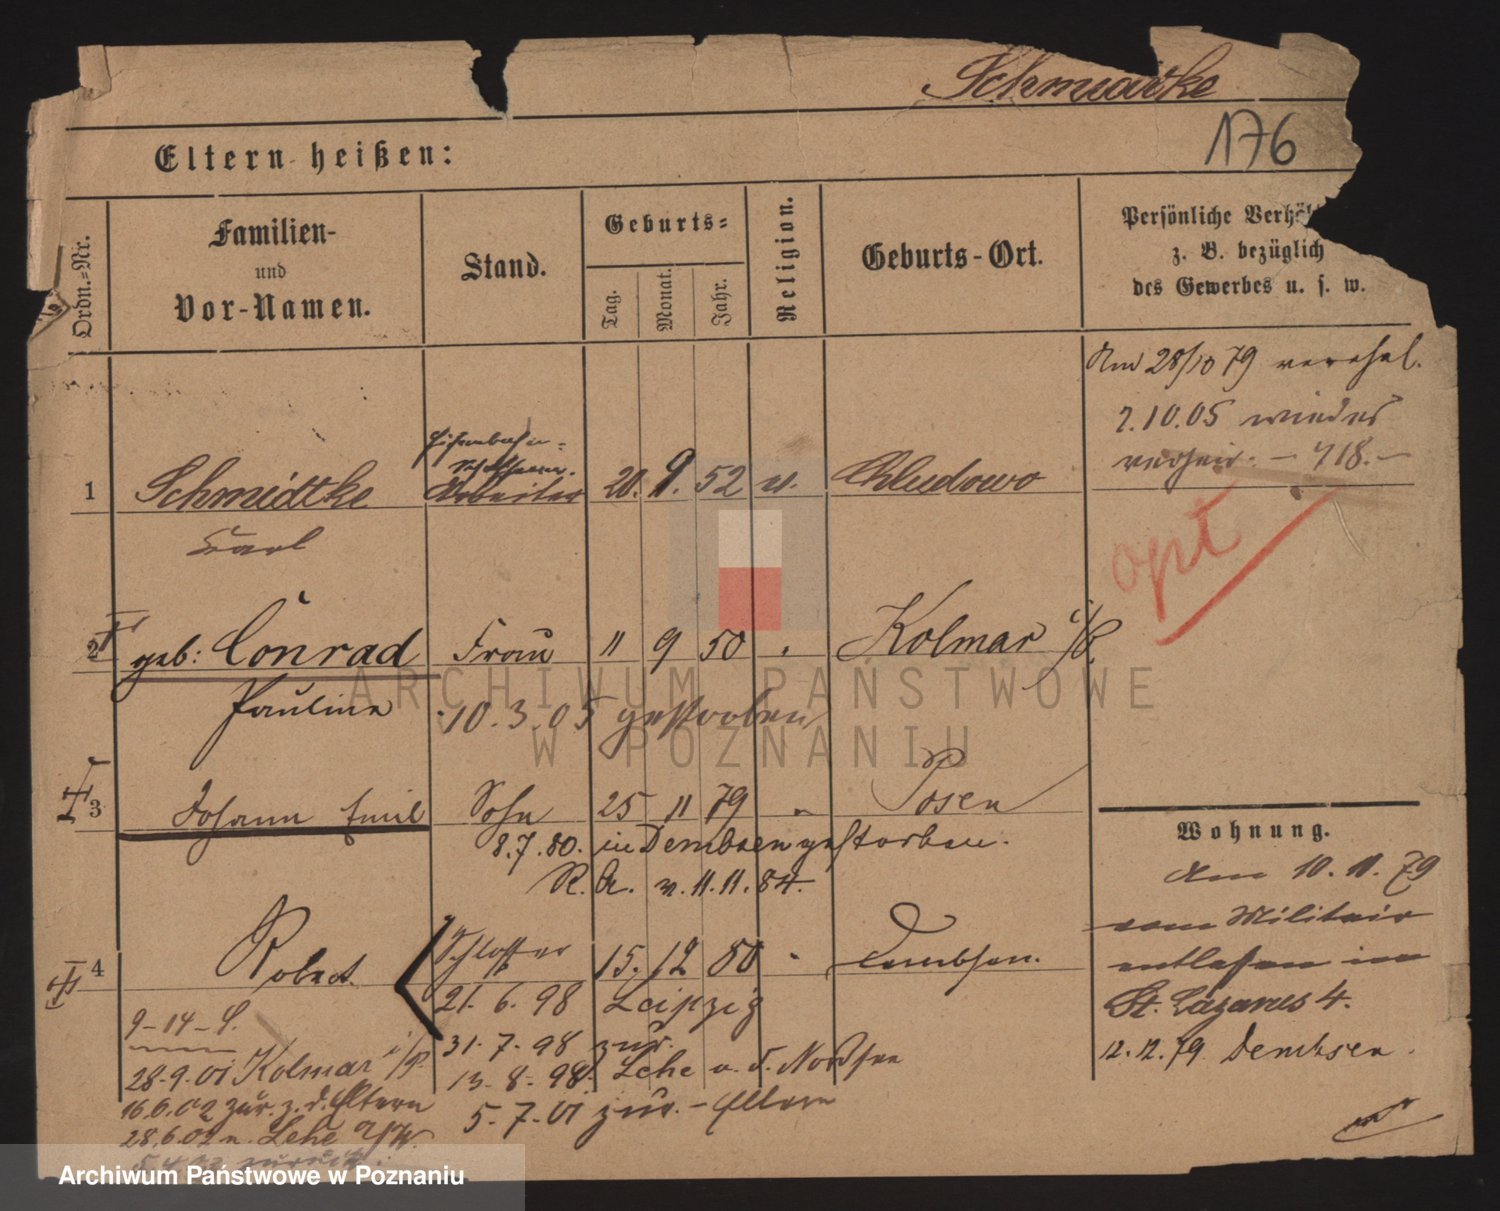 Schmidtke
176
Eltern heißen:
Ordn.-Nr.
Familien-
und
Vor-Namen.
Stand.
Geburts-
Tag.
Monat.
Jahr.
Religion.
Geburts-Ort.
Persönliche Verhäl
z. B. bezüglich
des Gewerbes u. s. w.
Am 28/10 79 verehel.
2.10.05 wieder
verheir. - 718. -
Eisenbahn-
1 Schmidtke Arbeiter 20. 9. 52 Chludowo
Karl
opt
2 geb: Conrad Frau 11 9 50 Kolmar i/P.
Pauline 10.3.05 gestorben
3 Johann Emil Sohn 25 11 79 " Posen
8.7.80. in Dembsen gestorben.
R. A. v. 11.11.84.
Wohnung.
Am 10.11.79
vom Militair
entlassen in
St. Lazarus 4.
12.12.79 Dembsen.
4 Robert. Schlosser 15. 12 80 " Dembsen.
21.6.98 Leipzig
31-7-98 zur.
13-8-98. Lehe a. d. Nordsee
5-7-01 zur. - Eltern
9-14-S.
28-9-01 Kolmar i/P.
16.6.02 zur. z. d. Eltern
28.6.02 n. Lehe
ARCHIWUM PAŃSTWOWE
W POZNANIU
Archiwum Państwowe w Poznaniu